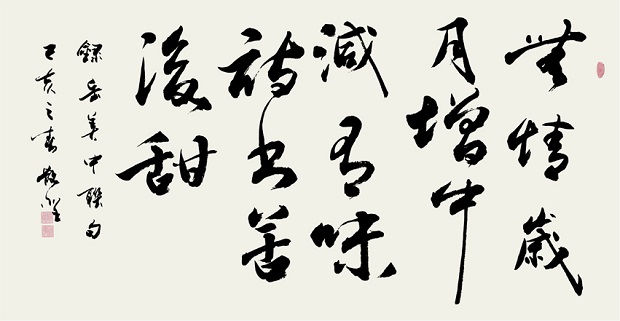 無情歲
月增中
減有味
詩書苦
後甜
錄岳美中聯句
己亥之春